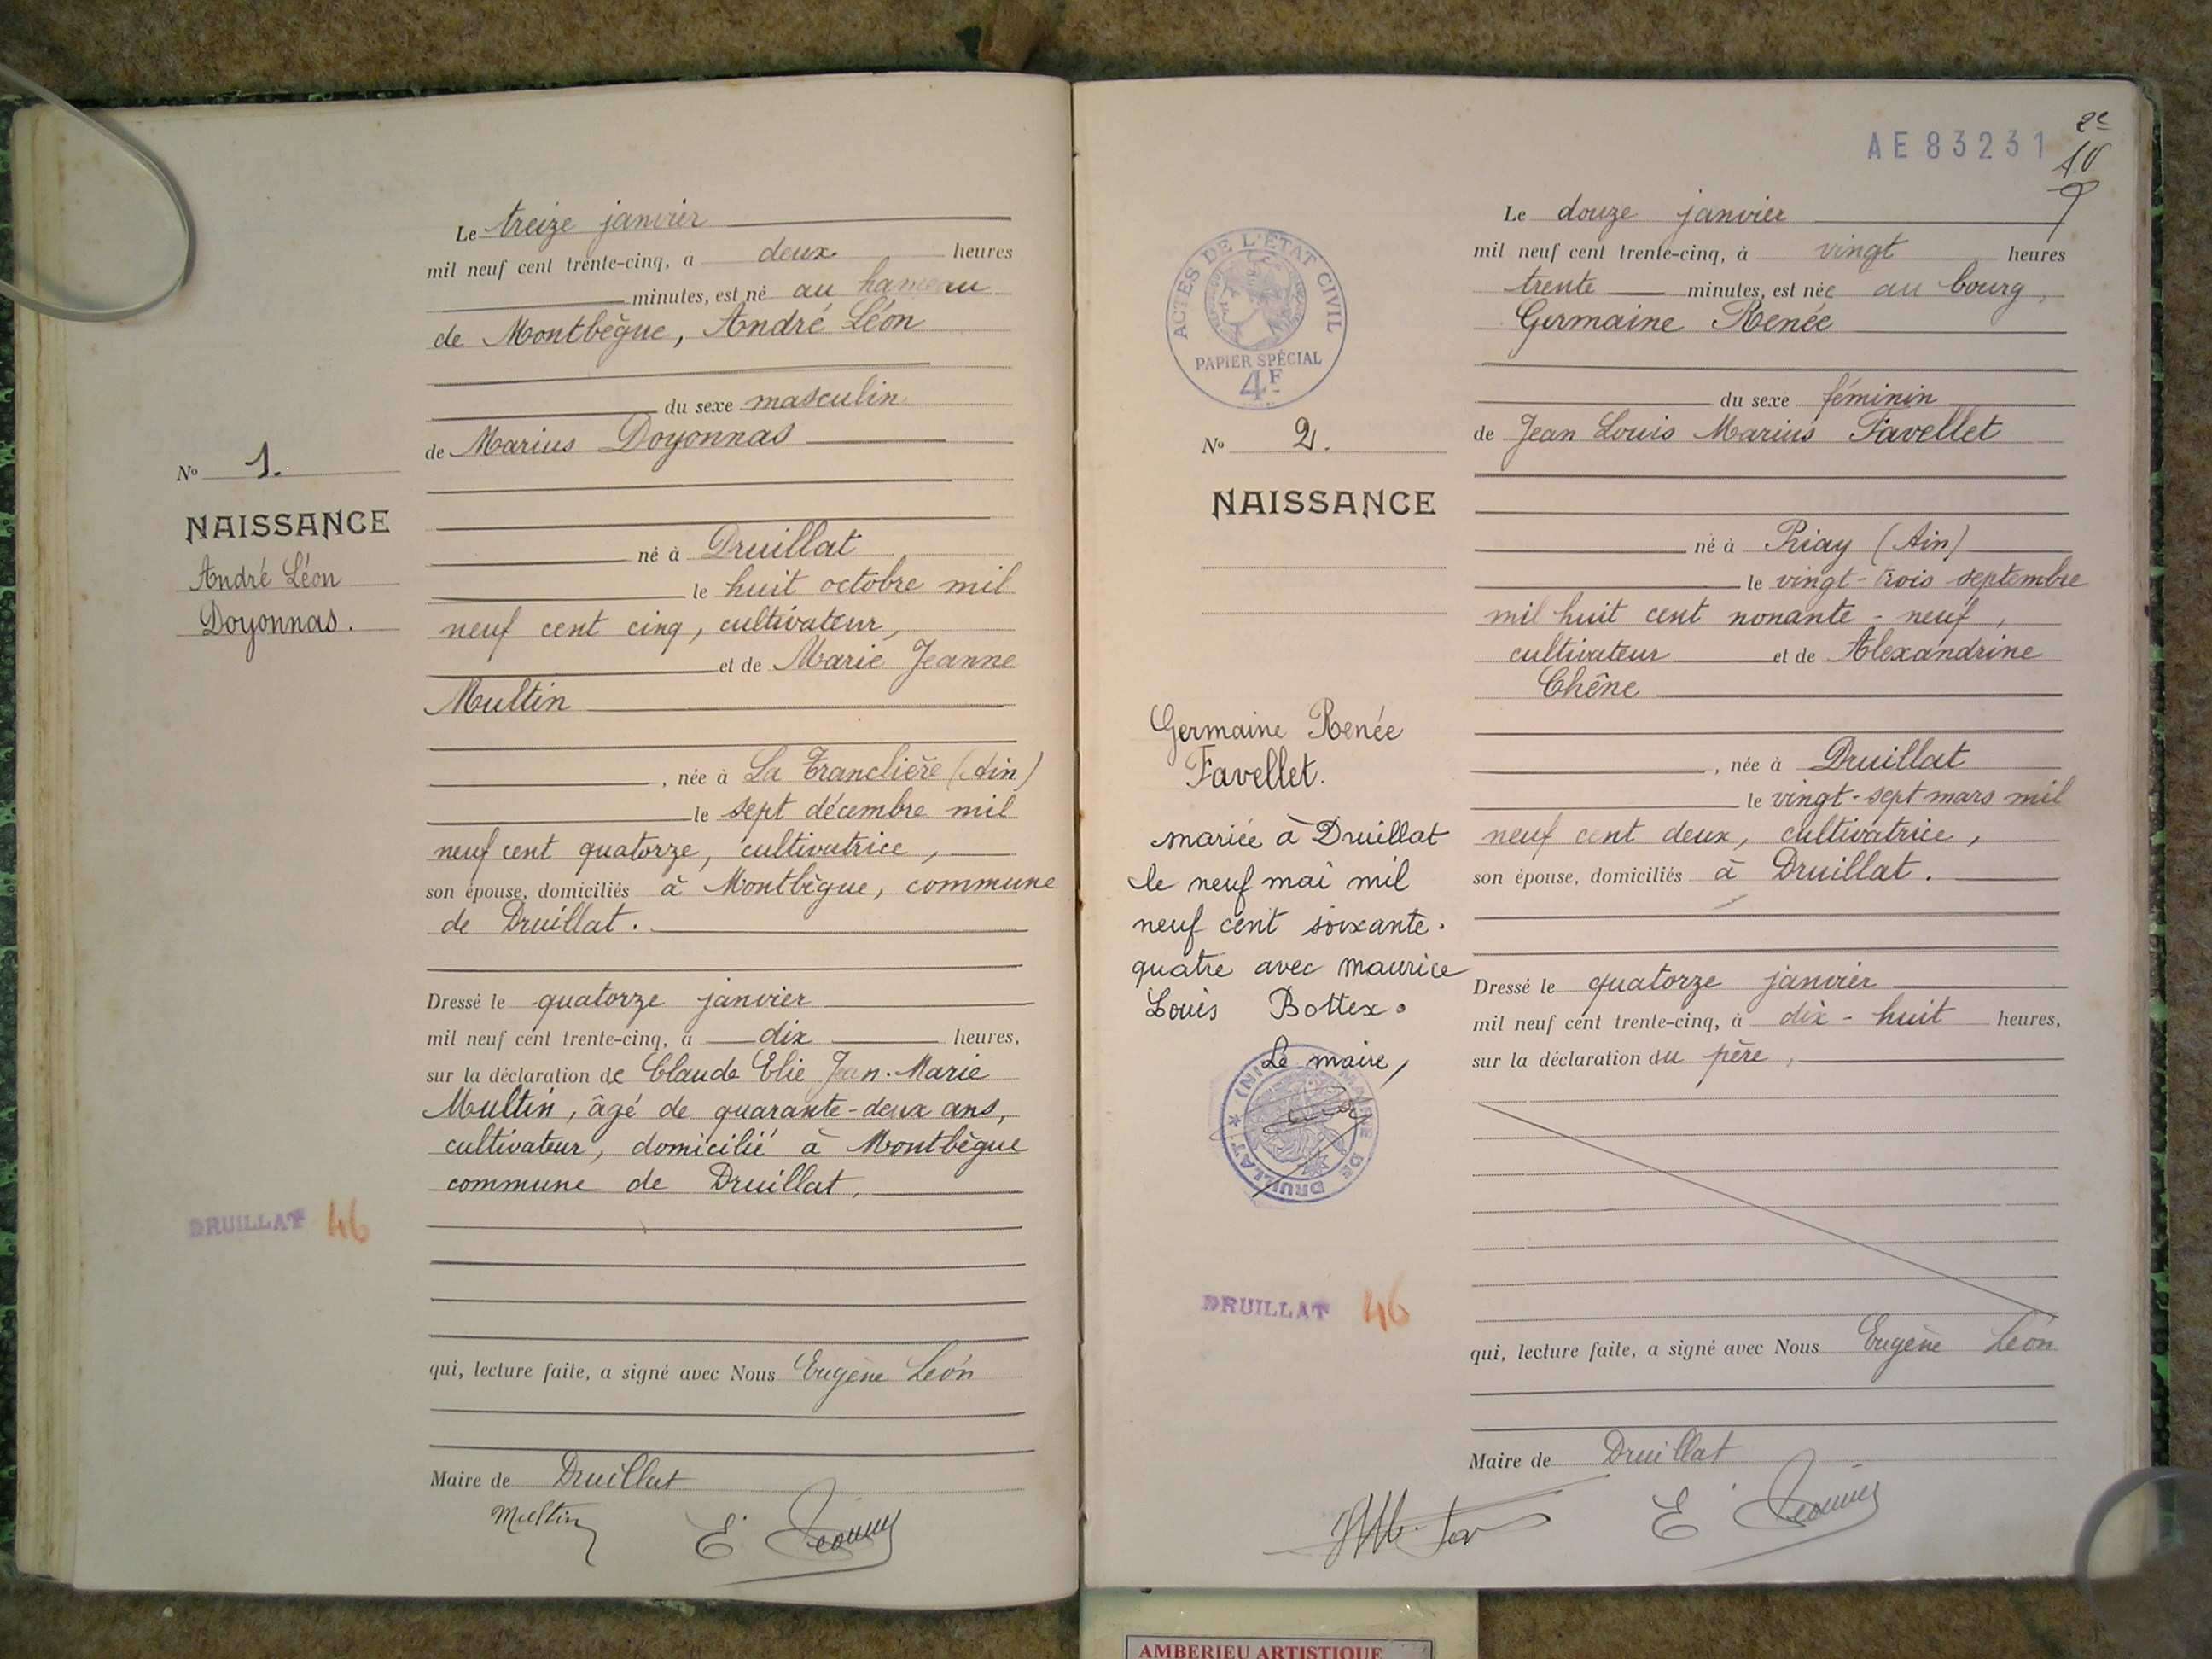 Le treize janvier
mil neuf cent trente-cinq, à deux heures
minutes, est né au hameau
de Montbègue, André Léon
du sexe masculin
de Marius Doyonnas
No 1.
NAISSANCE
André Léon
Doyonnas.
né à Druillat
le huit octobre mil
neuf cent cinq, cultivateur,
et de Marie Jeanne
Multin
, née à La Tranclière (Ain)
le sept décembre mil
neuf cent quatorze, cultivatrice,
son épouse, domiciliés à Montbègue, commune
de Druillat.
Dressé le quatorze janvier
mil neuf cent trente-cinq, à dix heures,
sur la déclaration de Claude Elie Jean-Marie
Multin, âgé de quarante-deux ans,
cultivateur, domicilié à Montbègue
commune de Druillat,
DRUILLAT 46
qui, lecture faite, a signé avec Nous Eugène Léon
Maire de Druillat
Multin
AE83231
2e
Le douze janvier
mil neuf cent trente-cinq, à vingt heures
trente minutes, est née au bourg,
Germaine Renée
ACTES DE L'ÉTAT CIVIL
PAPIER SPÉCIAL
4F
du sexe féminin
de Jean Louis Marius Favellet
No 2.
NAISSANCE
né à Priay (Ain)
le vingt-trois septembre
mil huit cent nonante-neuf,
cultivateur et de Alexandrine
Chêne
, née à Druillat
le vingt-sept mars mil
neuf cent deux, cultivatrice,
son épouse, domiciliés à Druillat.
Germaine Renée
Favellet.
mariée à Druillat
le neuf mai mil
neuf cent soixante-
quatre avec Maurice
Louis Bottex.
Le maire,
MAIRIE DE DRUILLAT
Dressé le quatorze janvier
mil neuf cent trente-cinq, à dix-huit heures,
sur la déclaration du père,
DRUILLAT 46
qui, lecture faite, a signé avec Nous Eugène Léon
Maire de Druillat
AMBERIEU ARTISTIQUE